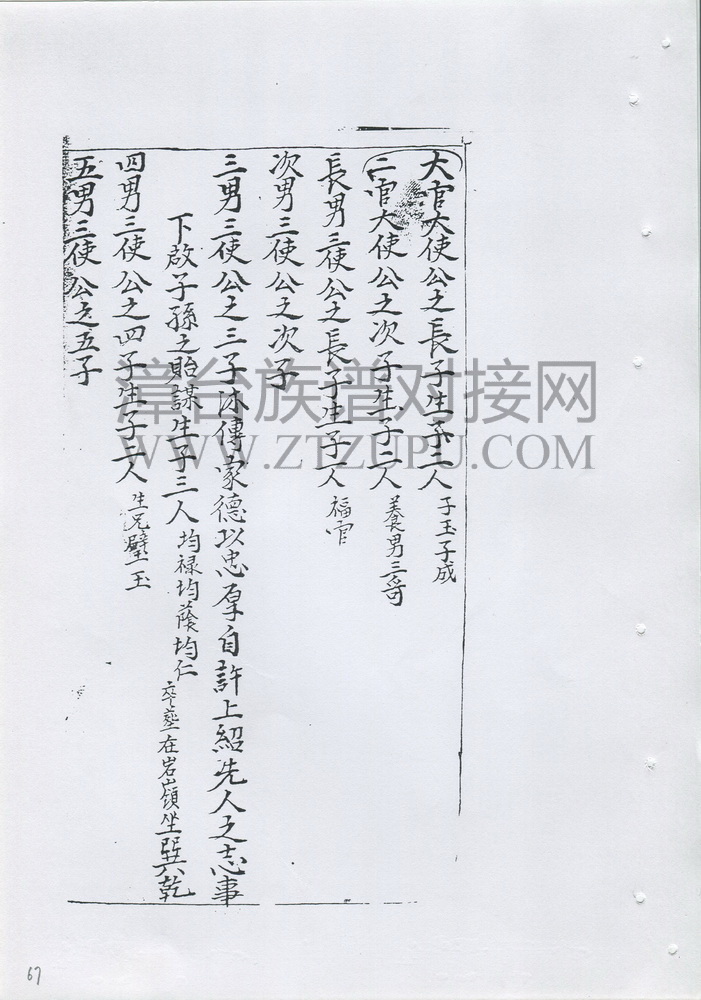 大官大使公之長子生子二人 子玉子成
二官大使公之次子生子二人 養男三奇
長男三使公之長子生子一人 福官
次男三使公之次子
三男三使公之三子沐傳家德以忠厚自許上紹先人之志事
下啟子孫之貽謀生子三人 均禄均蔭均仁 卒塟在岩嶺坐巽穴乾
四男三使公之四子生子二人 生兄璧玉
五男三使公之五子
漳台族谱对接网
WWW.ZTZUPU.COM
67